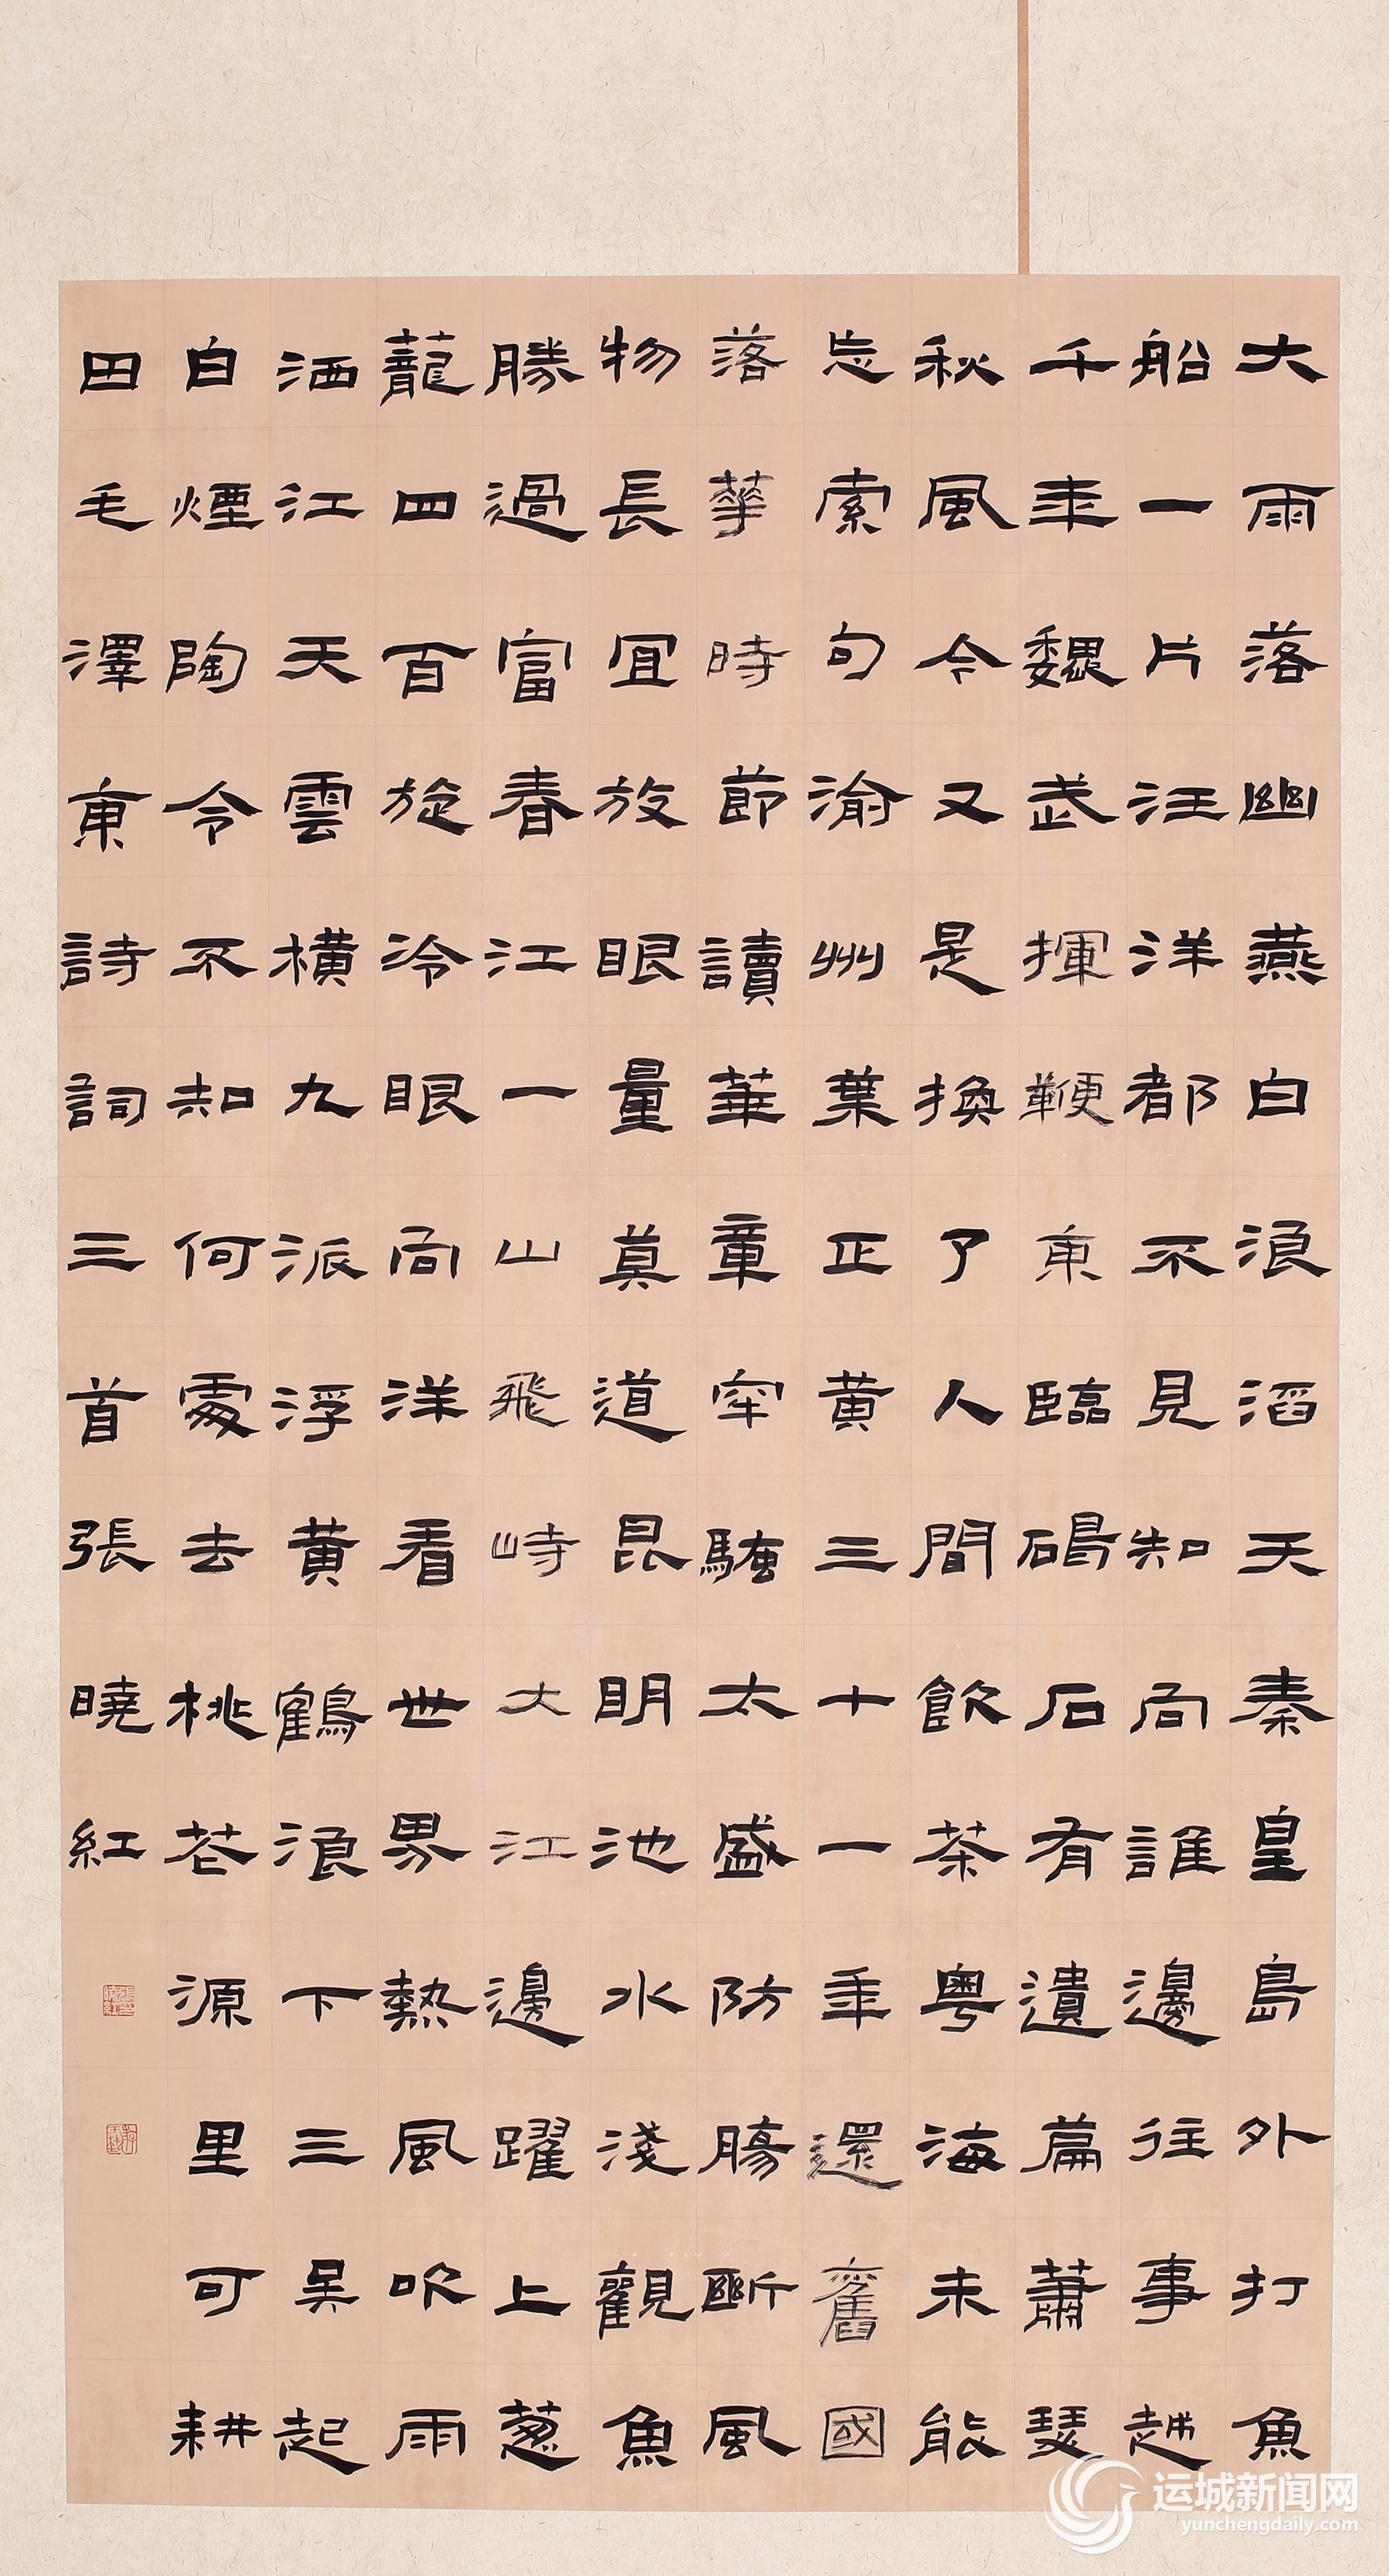 大雨落幽燕白浪滔天秦皇島外打魚
船一片汪洋都不見知向誰邊往事越
千年魏武揮鞭東臨碣石有遺篇蕭瑟
秋風今又是換了人間飲茶粵海未能
忘索句渝州葉正黃三十一年還舊國
落華時節讀華章牢騷太盛防腸斷風
物長宜放眼量莫道昆明池水淺觀魚
勝過富春江一山飛峙大江邊躍上葱
蘢四百旋冷眼向洋看世界熱風吹雨
洒江天雲橫九派浮黃鶴浪下三吳起
白煙陶令不知何處去桃花源里可耕
田毛澤東詩詞三首張曉紅
运城新闻网
yunchengdaily.com